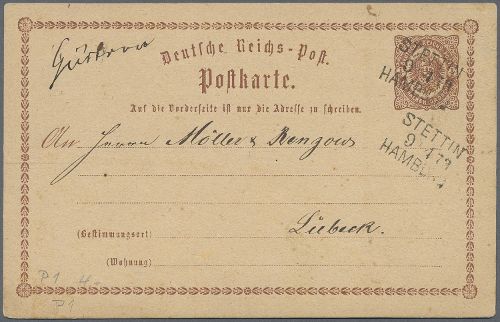 Güstrow
Deutsche Reichs-Post.
Postkarte.
Auf die Vorderseite ist nur die Adresse zu schreiben.
STETTIN
HAMBURG
STETTIN
HAMBURG
An Herrn Möller & Rengow
(Bestimmungsort) Lübeck.
(Wohnung)
P1 4-
P1